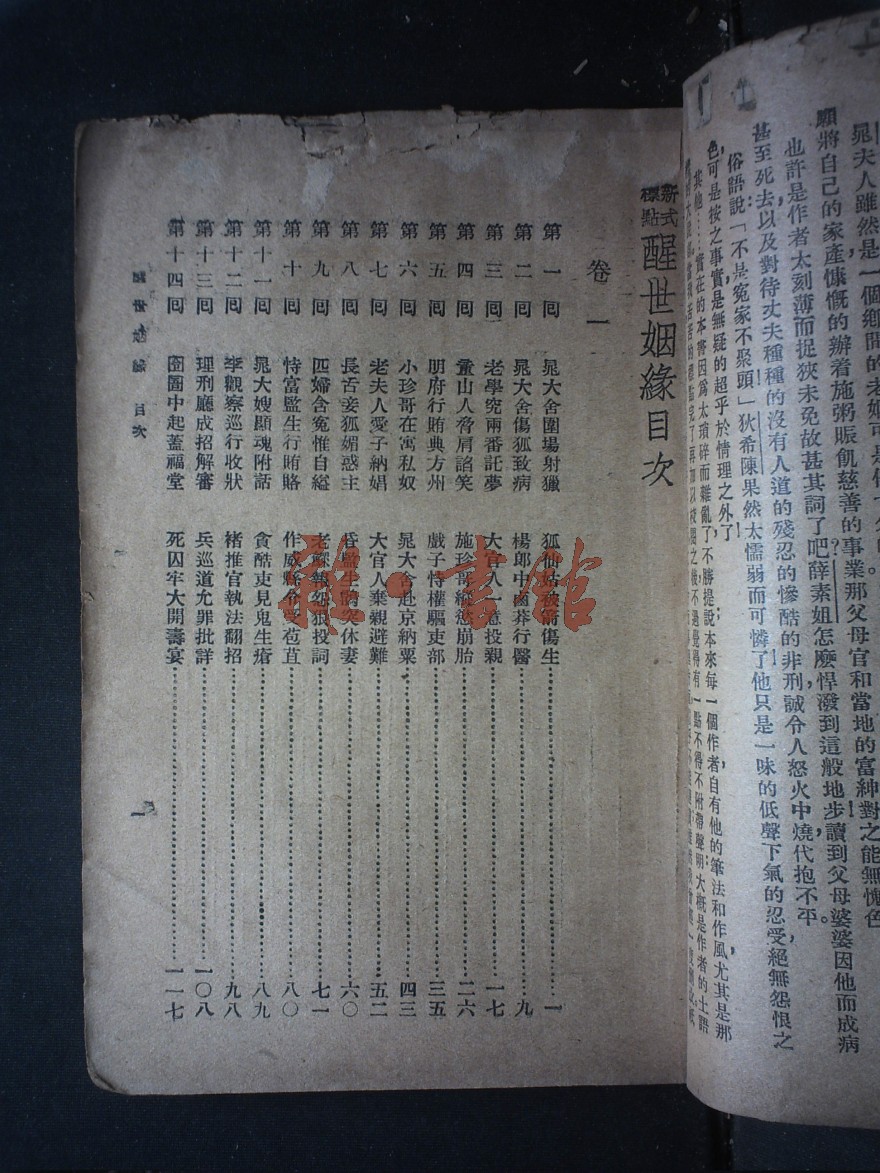 顯將自己的家產慷慨的辦着施粥賑飢慈善的事業那父母官和當地的富紳對之能無愧色
也許是作者太刻薄而捉狹未免故甚其詞了吧薛素姐怎麼悍潑到這般地步讀到父母婆婆因他而成病
甚至死去以及對待丈夫種種的沒有人道的殘忍的慘酷的非刑誠令人怒火中燒代抱不平
俗語說「不是冤家不聚頭」狄希陳果然太懦弱而可憐了他只是一味的低聲下氣的忍受絕無怨恨之
色可是按之事實是無疑的超乎於情理之外了
其他…實在的本書因爲太瑣碎而雜亂了不勝提說本來每一個作者自有他的筆法和作風尤其是那
新式標點 醒世姻緣目次
卷一
第一回 晁大舍圍場射獵 狐仙姑被箭傷生 一
第二回 晁大舍傷狐致病 楊郎中鹵莽行醫 九
第三回 老學究兩番託夢 大官人一意投親 一七
第四回 童山人脅肩諂笑 施珍哥縱慾崩胎 二六
第五回 明府行賄典方州 戲子恃權驅吏部 三五
第六回 小珍哥在寓私奴 晁大舍赴京納粟 四三
第七回 老夫人愛子納娼 大官人棄親避難 五二
第八回 長舌妾狐媚惑主 昏監生鶻突休妻 六〇
第九回 匹婦含冤惟自縊 老鰥報怨狠投詞 七一
第十回 恃富監生行賄賂 作威縣令受苞苴 八〇
第十一回 晁大嫂顯魂附話 貪酷吏見鬼生瘡 八九
第十二回 李觀察巡行收狀 褚推官執法翻招 九八
第十三回 理刑廳成招解審 兵巡道允罪批詳 一〇八
第十四回 囹圄中起蓋福堂 死囚牢大開壽宴 一一七
醒世姻緣 目次
一
雅·書館